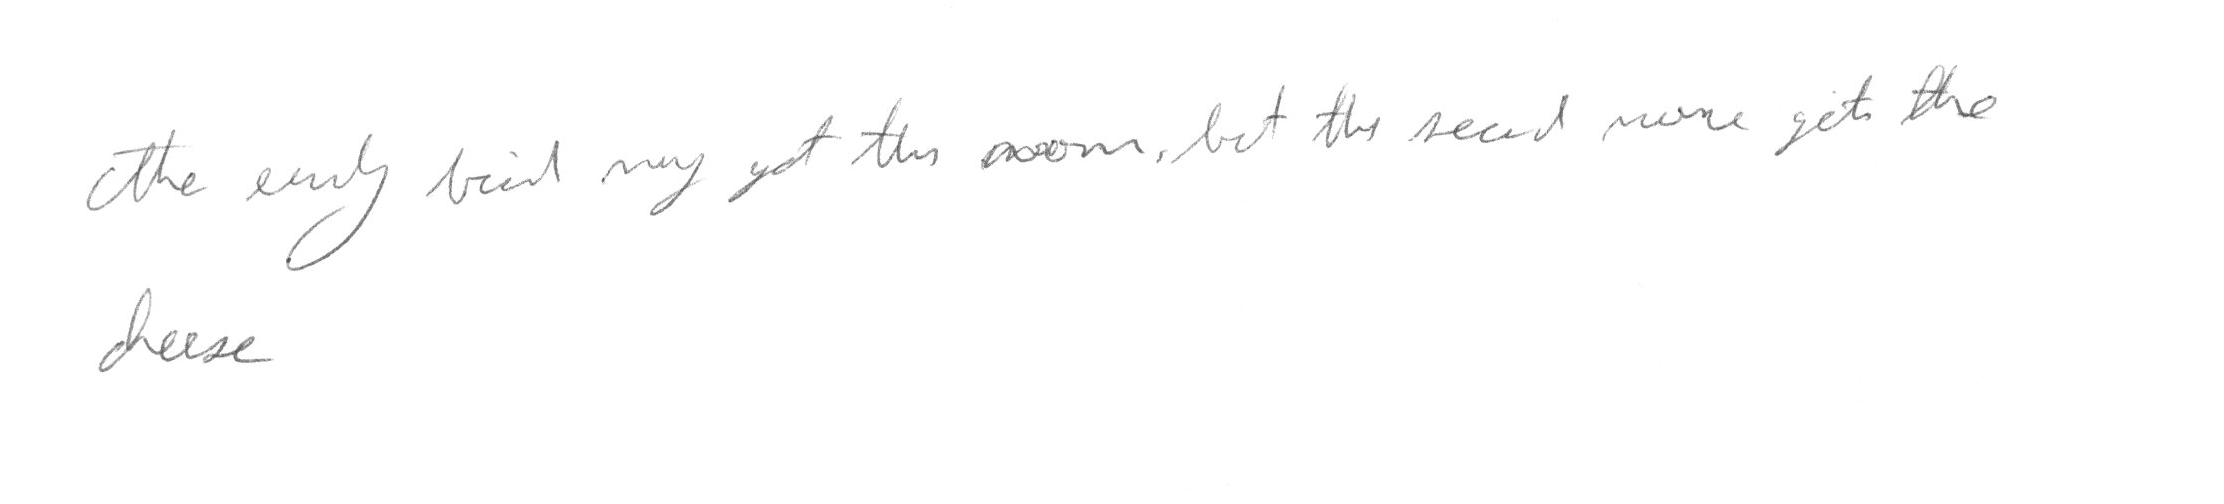 The early bird may get the worm, but the second mouse gets the
cheese